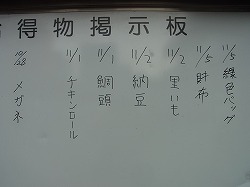 拾得物掲示板
11/5 緑色バッグ
11/5 財布
11/2 里いも
11/2 納豆
11/1 鯛頭
11/1 チキンロール
10/28 メガネ